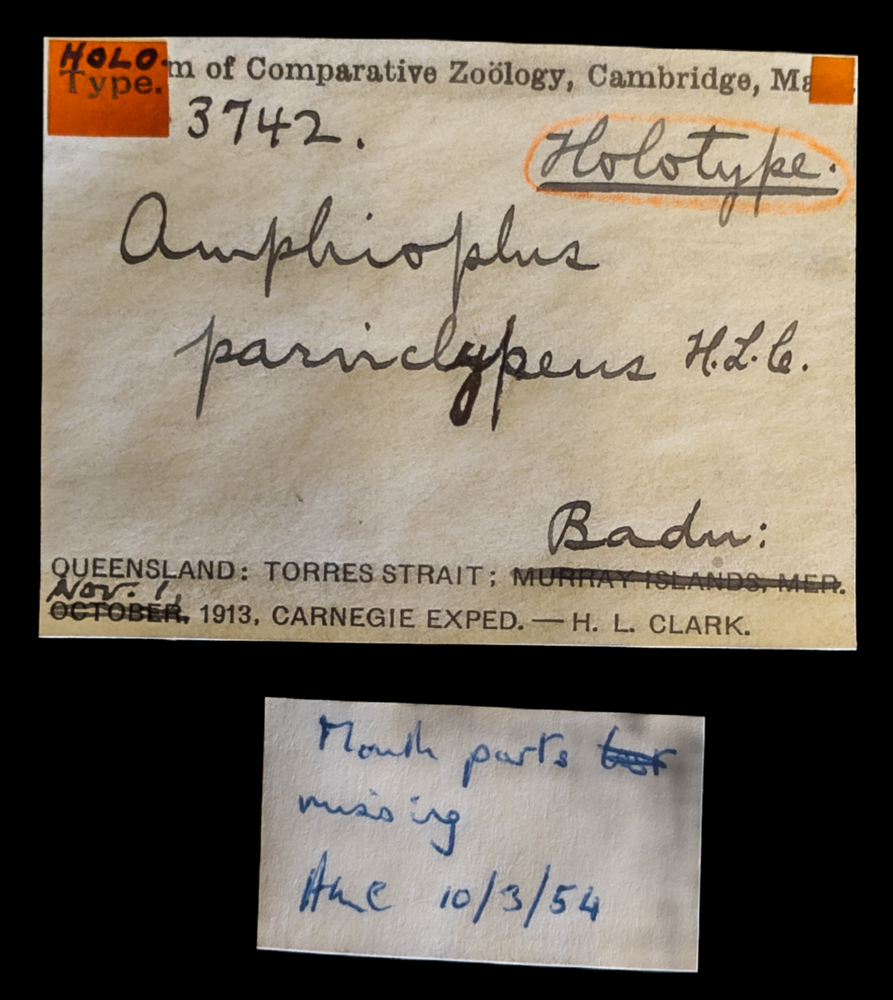 HOLO
Type.
m of Comparative Zoölogy, Cambridge, Ma
3742.
Holotype.
Amphioplus
parviclypeus H.L.C.
Badu:
QUEENSLAND: TORRES STRAIT; MURRAY ISLANDS, MER.
Nov. 1,
OCTOBER, 1913, CARNEGIE EXPED. — H. L. CLARK.
Mouth parts
missing
10/3/54